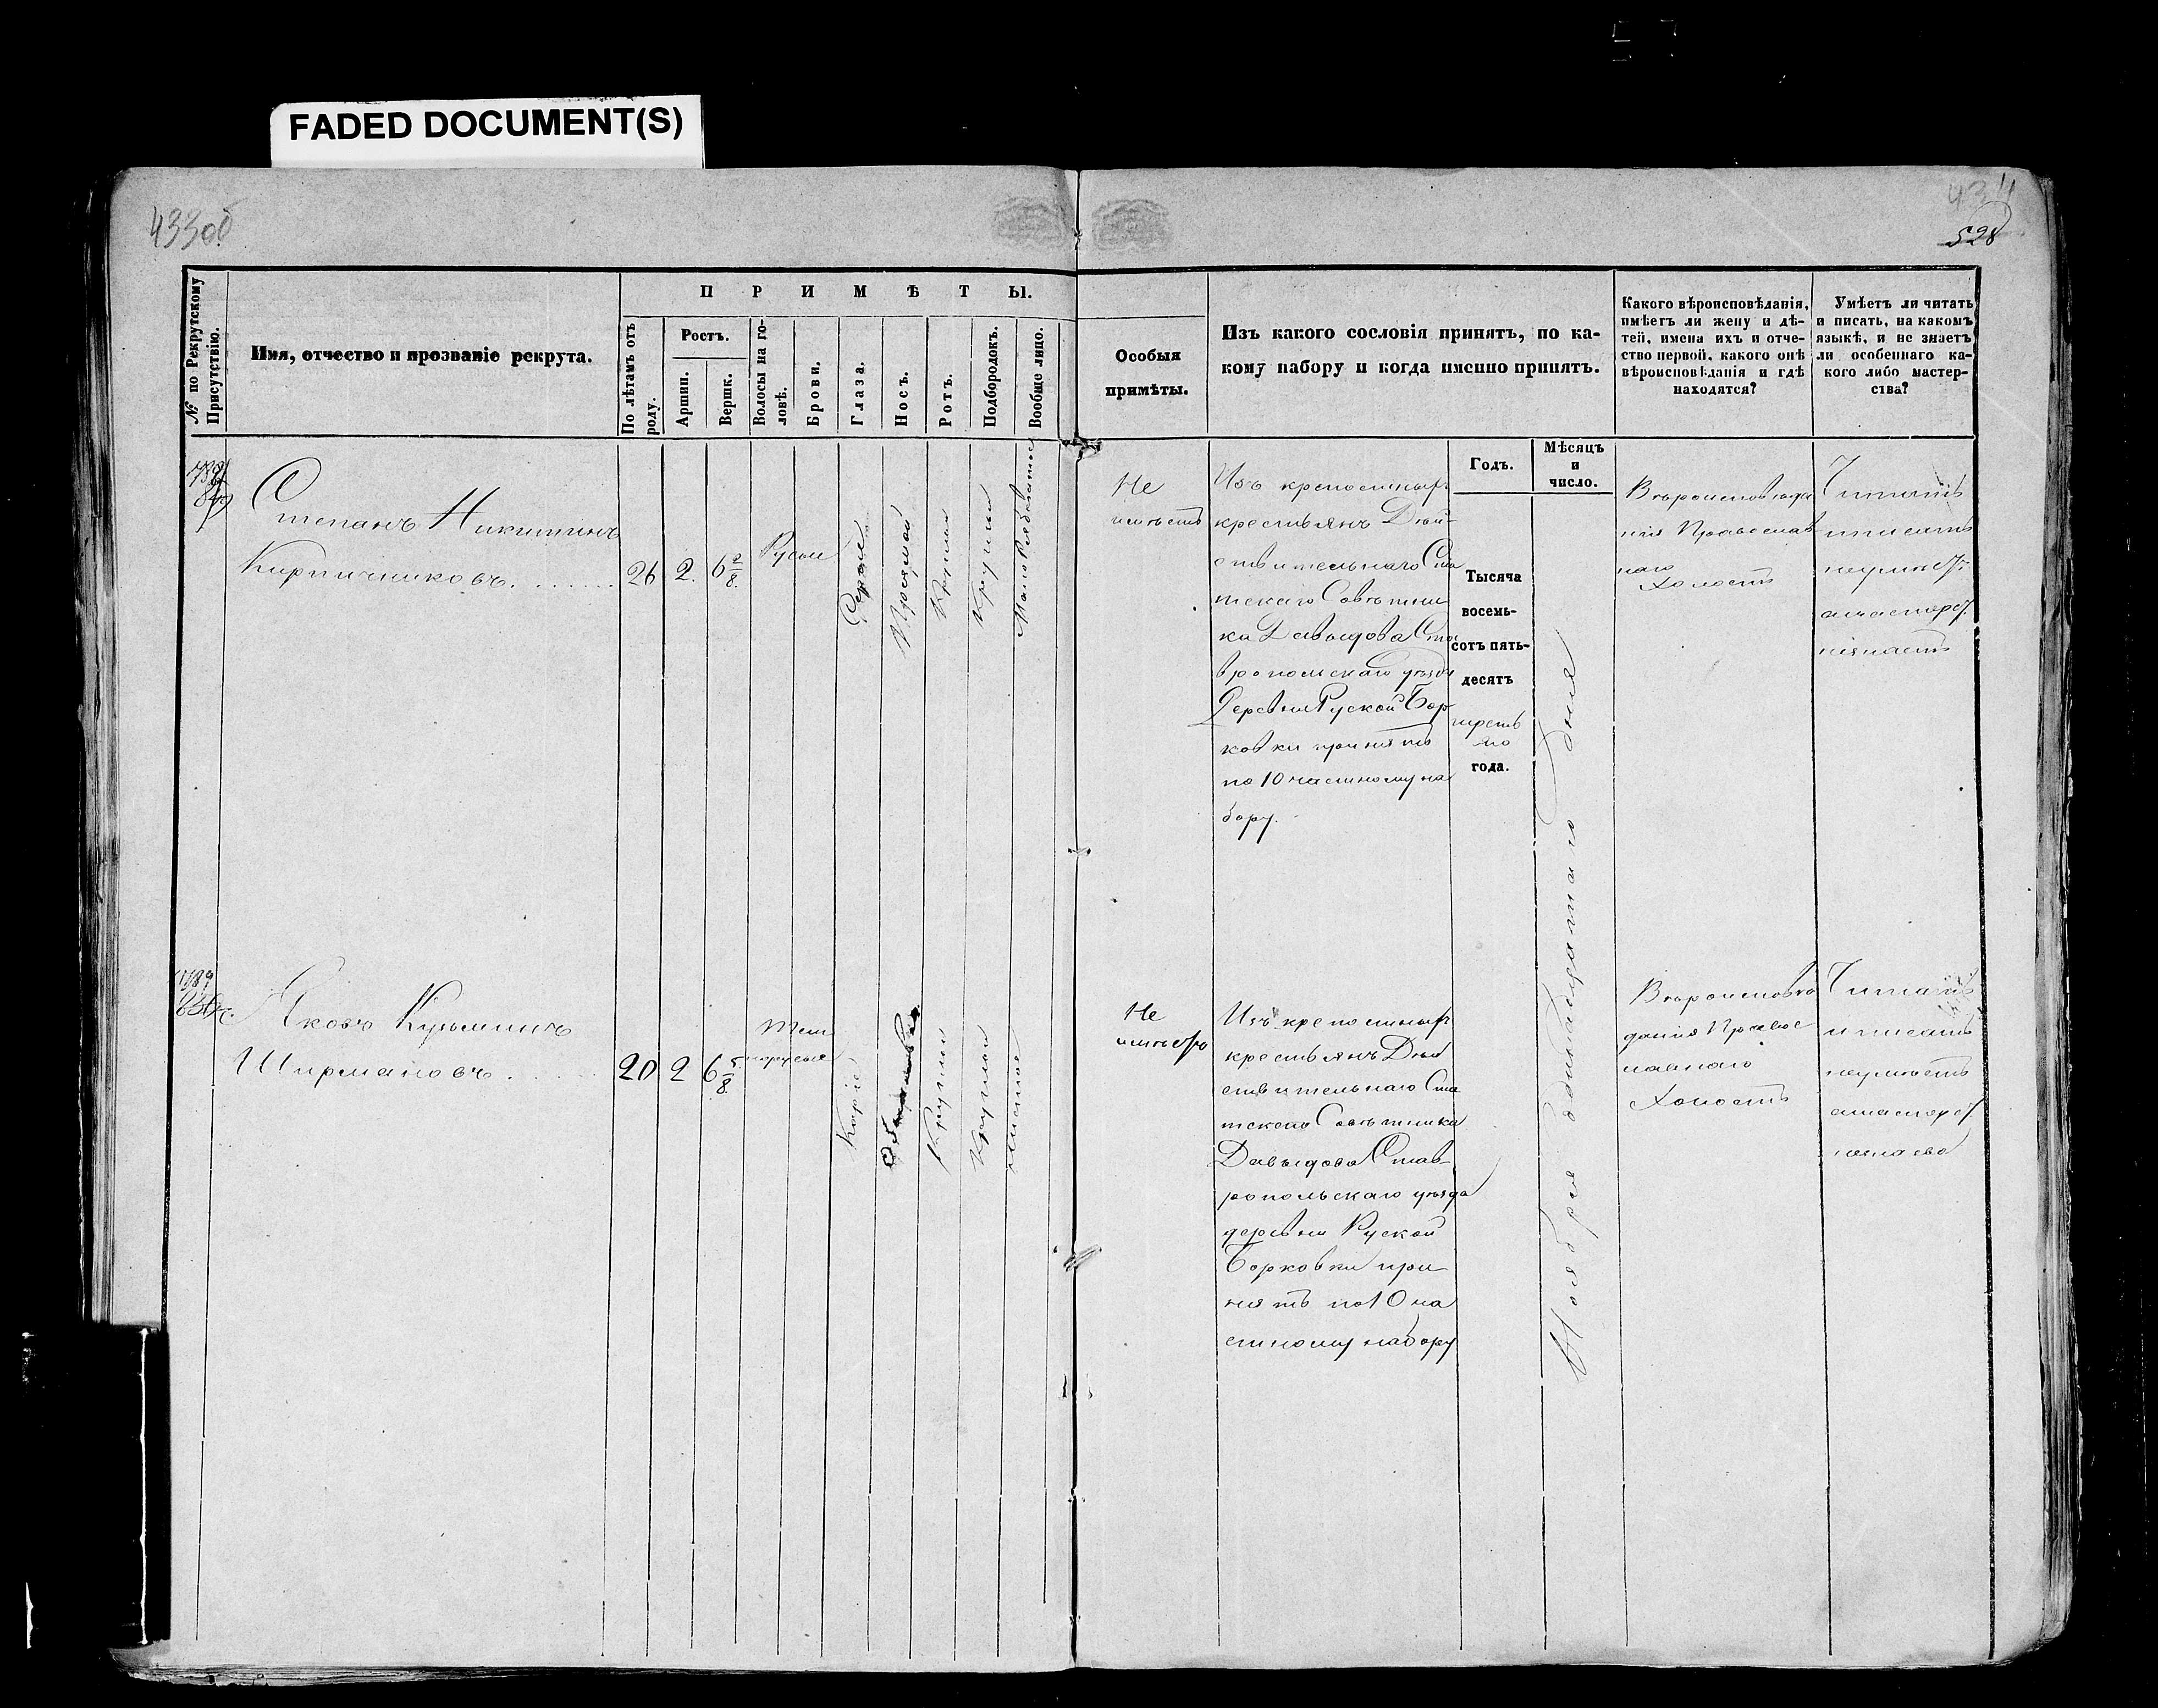 FADED DOCUMENT(S)
433об
434
528
№ по Рекрутскому Присутствію.
Имя, отчество и прозваніе рекрута.
ПРИМѢТЫ.
По лѣтамъ отъ роду.
Ростъ.
Аршин.
Вершк.
Волосы на головѣ.
Брови.
Глаза.
Носъ.
Ротъ.
Подбородокъ.
Вообще лицо.
Особыя
примѣты.
Изъ какого сословія принятъ, по ка-
кому набору и когда именно принятъ.
Годъ.
Мѣсяцъ
и
число.
Какого вѣроисповѣданія,
имѣетъ ли жену и дѣ-
тей, имена ихъ и отче-
ство первой, какого онѣ
вѣроисповѣданія и гдѣ
находятся?
Умѣетъ ли читать
и писать, на какомъ
языкѣ, и не знаетъ
ли особеннаго ка-
кого либо мастер-
ства?
Степанъ Никитинъ
Кирпичниковъ.
26
2.
6 2/8.
Русыя
Серые
Прямой
Круглый
Не
имѣетъ
Изъ крепостныхъ
крестьянъ Дѣй-
ствительнаго Ста
тскаго Совѣтни
ка Давыдова Ста
вропольскаго уѣзда
Деревни Руской Бор
ковки принятъ
по 10 частному на
бору.
Тысяча
восемь-
сотъ пять-
десятъ
третья
го
года.
Ноября двенадцатаго дня
Вѣроисповѣда
нія Православ
наго
Холостъ
Читать
и писать
неумѣетъ
а мастерст.
незнаетъ
Яковъ Кузьминъ
Ширмановъ
20
2
6 5/8.
Темно
русыя
Каріе
Чистое
Не
имѣетъ
Изъ крепостныхъ
крестьянъ Дѣй
ствительнаго Ста
тскаго Совѣтника
Давыдова Став-
ропольскаго уѣзда
деревни Руской
Борковки при-
нятъ по 10 ча
стному набору
Вѣроисповѣ
данія Правос
лавнаго
Холостъ
Читать
и писать
неумѣетъ
а мастерст.